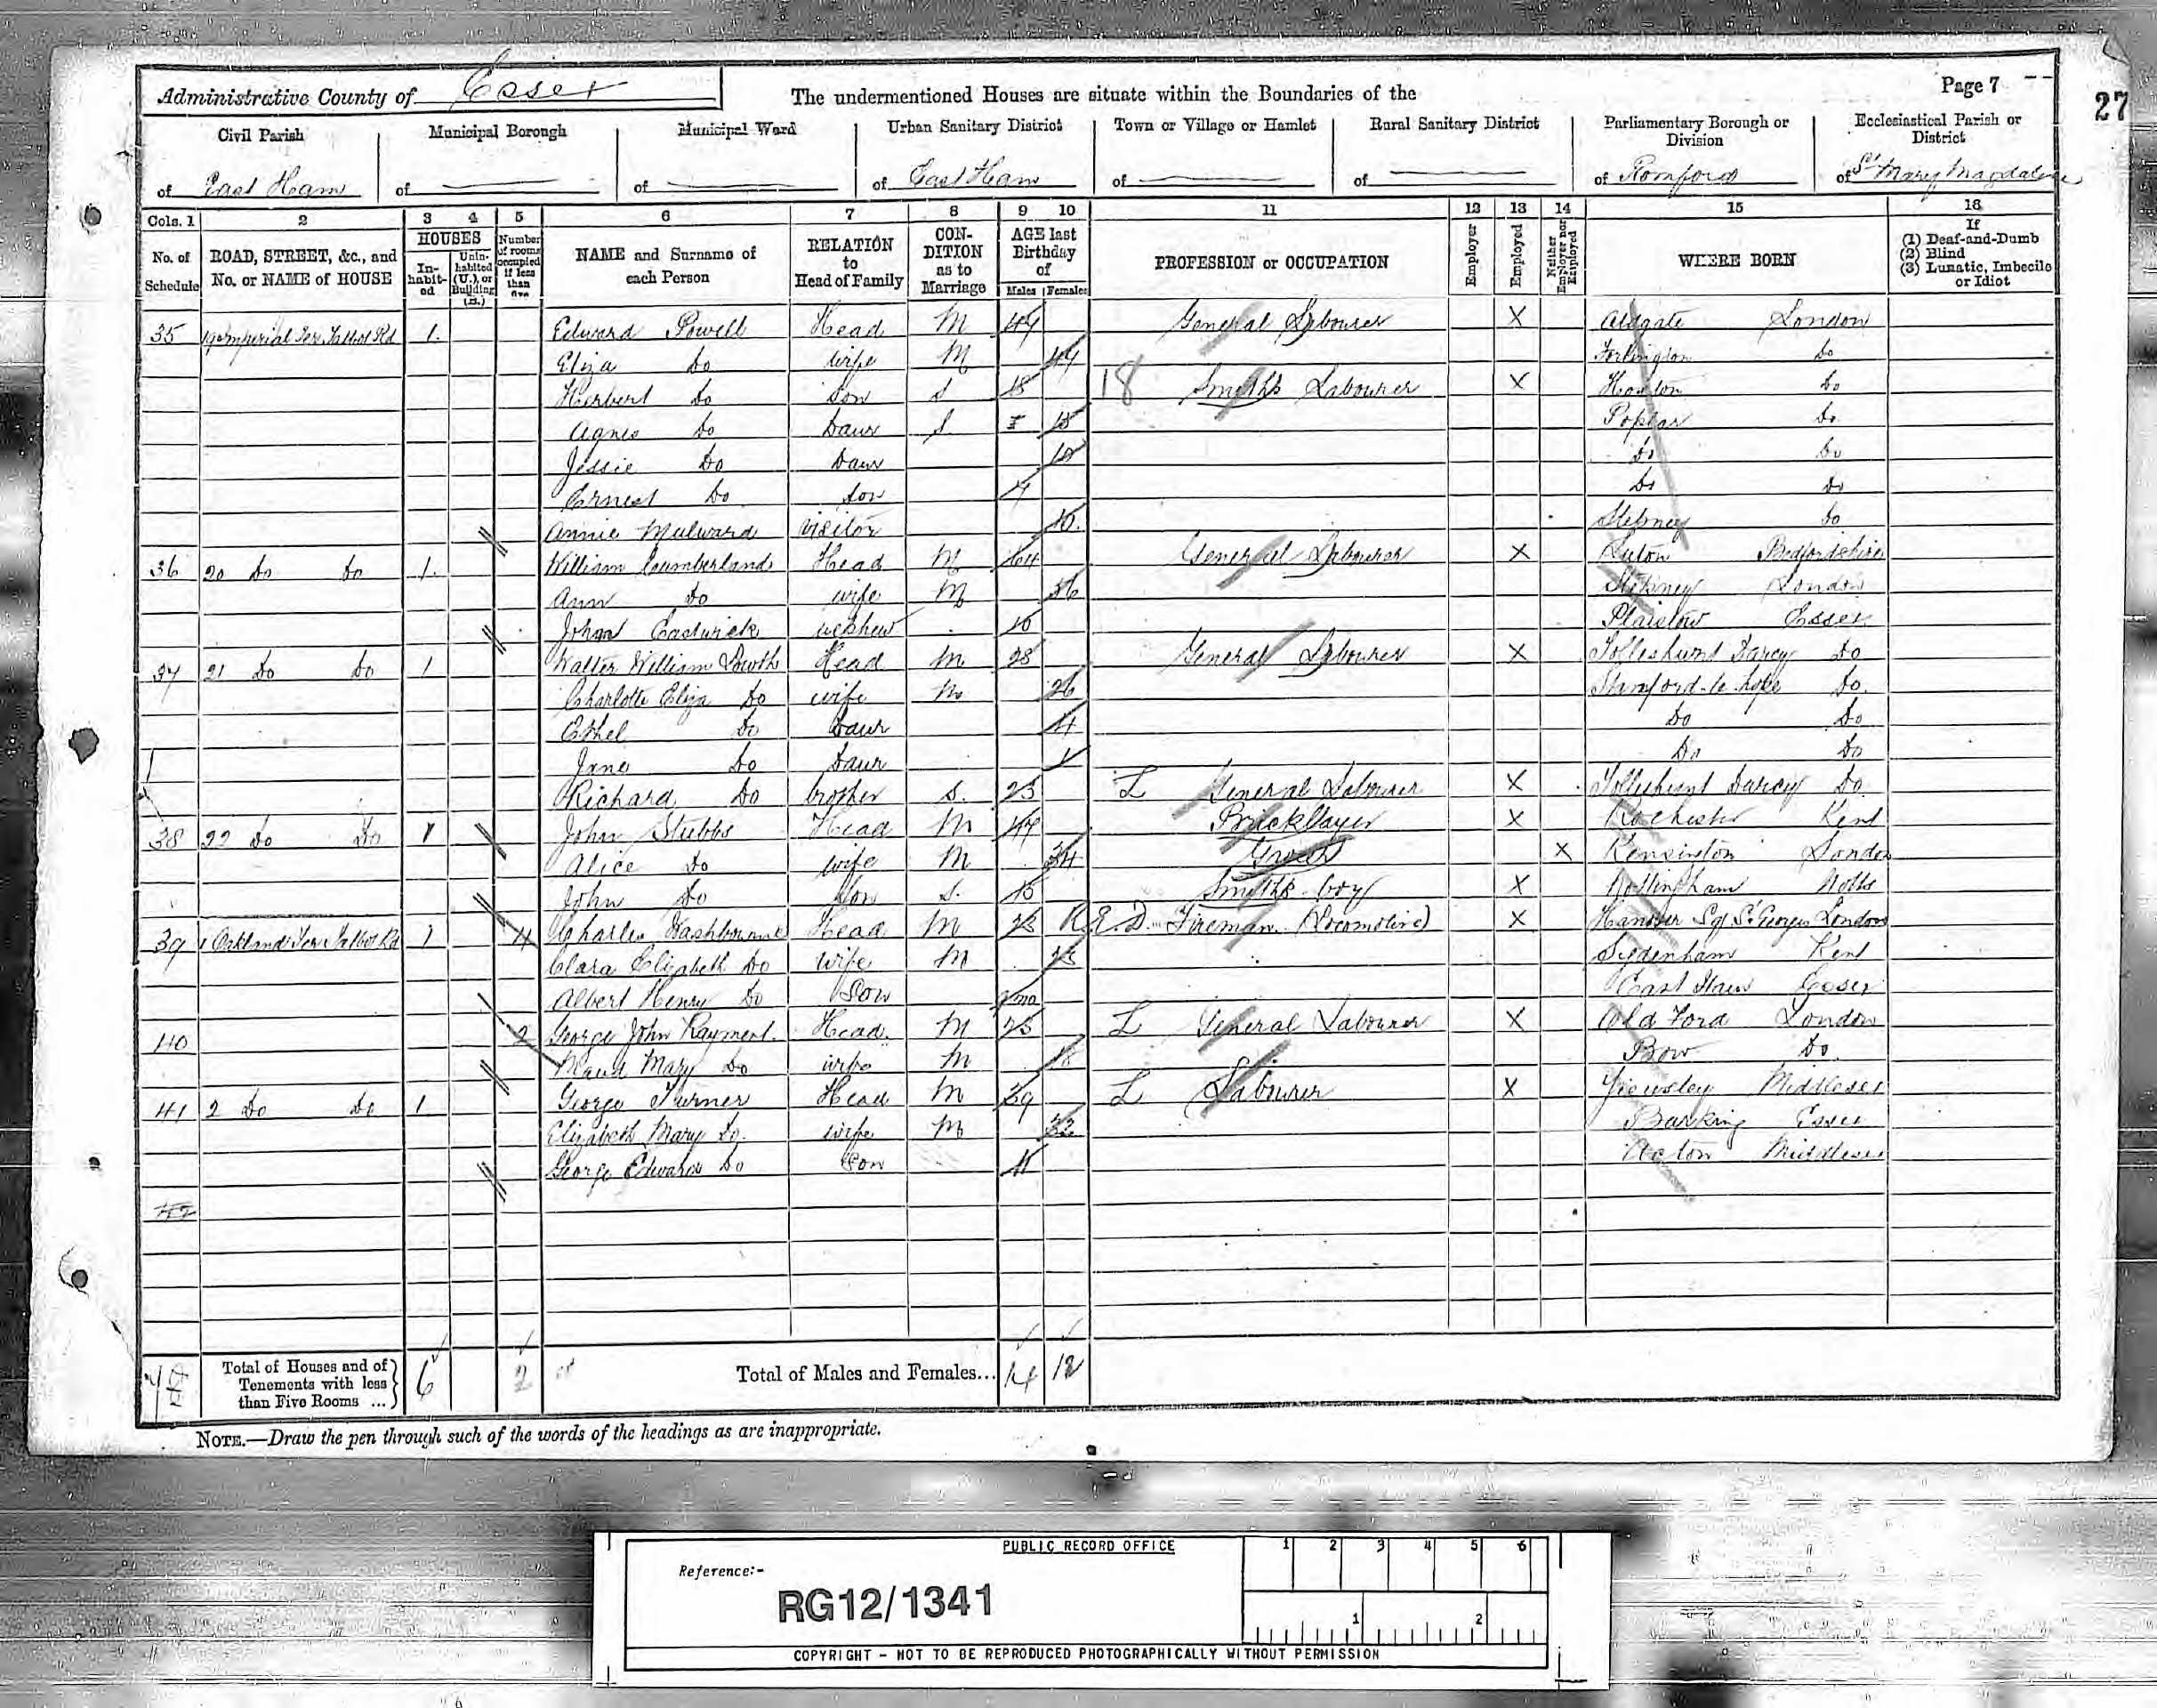 Administrative County of Essex
The undermentioned Houses are situate within the Boundaries of the
Page 7
27
Civil Parish
Municipal Borough
Municipal Ward
Urban Sanitary District
Town or Village or Hamlet
Rural Sanitary District
Parliamentary Borough or Division
Ecclesiastical Parish or District
of East Ham
of
of
of East Ham
of
of
of Romford
of St Mary Magdalene
Cols. 1 2 3 4 5 6 7 8 9 10 11 12 13 14 15 16
No. of Schedule
ROAD, STREET, &c., and No. or NAME of HOUSE
HOUSES
In-habit-ed
Unin-habited (U.), or Building (B.)
Number of rooms occupied if less than five
NAME and Surname of each Person
RELATION to Head of Family
CON-DITION as to Marriage
AGE last Birthday of
Males Females
PROFESSION or OCCUPATION
Employer
Employed
Neither Employer nor Employed
WHERE BORN
If
(1) Deaf-and-Dumb
(2) Blind
(3) Lunatic, Imbecile or Idiot
35 19 Imperial Ter Talbot Rd 1 Edward Powell Head M 47 General Labourer X Aldgate London
Eliza Do wife M 47 Do
Herbert Do Son S 18 18 Smiths Labourer X Hoxton Do
Agnes Do Daur S 15 Poplar Do
Jessie Do Daur 10 Do Do
Ernest Do Son 7 Do Do
Annie Mulward Visitor 10 Stepney Do
36 20 Do Do 1 William Cumberland Head M 64 General Labourer X Luton Bedfordshire
Ann Do wife M 56 Stepney London
John Eastwick nephew 10 Plaistow Essex
37 21 Do Do 1 Walter William Head M 28 General Labourer X Tolleshunt Darcy Do
Charlotte Eliza Do wife M 26 Stanford-le-hope Do
Ethel Do Daur 4 Do Do
Jane Do Daur 1 Do Do
Richard Do brother S. 23 L General Labourer X Tolleshunt Darcy Do
38 22 Do Do 1 John Stubbs Head M 47 Bricklayer X Rochester Kent
Alice Do wife M 34 X Kensinton London
John Do Son S. 15 Smiths boy X Nottingham Notts
39 1 Oakland Ter Talbot Rd 1 4 Charles Washbourne Head M 23 R.E.D. Fireman (Locomotive) X Hanover Sq St Georges London
Clara Elizabeth Do wife M 23 Sydenham Kent
Albert Henry Do Son 9 mo East Ham Essex
40 2 George John Rayment Head M 23 L General Labourer X Old Ford London
Maud Mary Do wife M 18 Bow Do
41 2 Do Do 1 George Turner Head M 39 L Labourer X Yiewsley Middlesex
Elizabeth Mary Do wife M 32 Barking Essex
George Edward Do Son 11 Acton Middlesex
42
Total of Houses and of Tenements with less than Five Rooms ... 6 2
Total of Males and Females... 14 12
NOTE.—Draw the pen through such of the words of the headings as are inappropriate.
PUBLIC RECORD OFFICE
1 2 3 4 5 6
Reference:-
RG12/1341
1 2
COPYRIGHT - NOT TO BE REPRODUCED PHOTOGRAPHICALLY WITHOUT PERMISSION